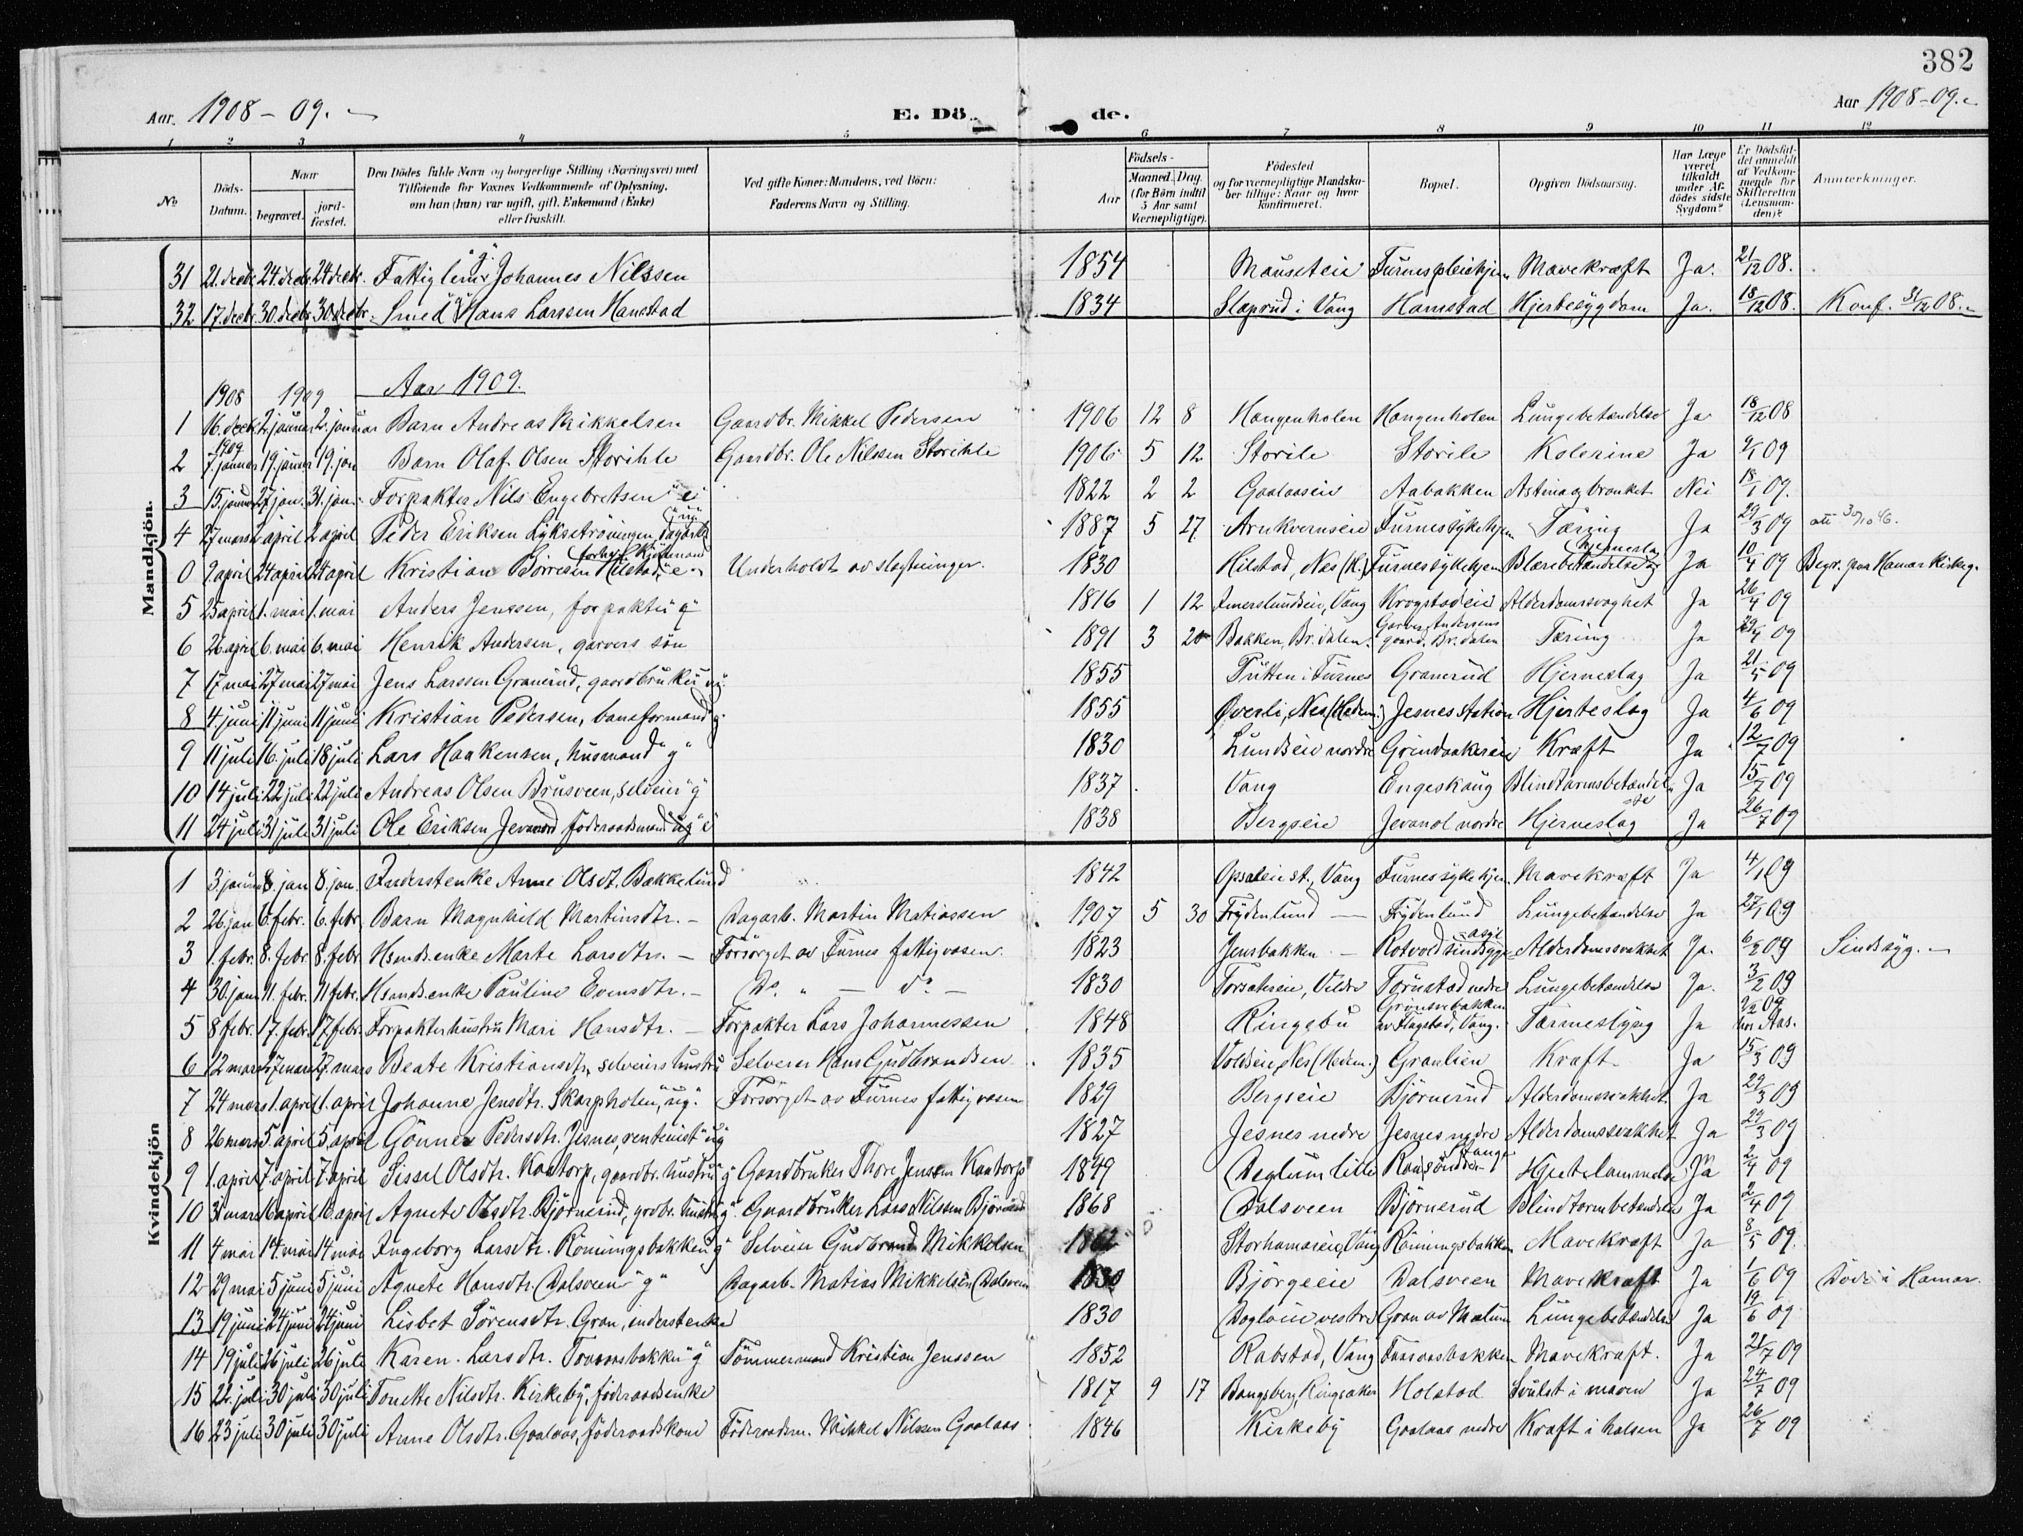 382
Aar. 1908-09. E. Dö de. Aar 1908-09.
1 2 3 4 5 6 7 8 9 10 11 12
No Döds-Datum. Naar begravet. jord-fæstet. Den Dödes fulde Navn og borgerlige Stilling (Næringsvei) med Tilföiende for Voxnes Vedkommende af Oplysning, om han (hun) var ugift, gift, Enkemand (Enke) eller fraskilt. Ved gifte Koner: Mandens, ved Börn: Faderens Navn og Stilling. Födsels- Aar Maaned. Dag. (for Börn indtil 5 Aar samt Værnepligtige). Födested og for værnepligtige Mandskaber tillige: Naar og hvor konfirmeret. Bopæl. Opgiven Dödsaarsag. Har Læge været tilkaldt under Afdödes sidste Sygdom? Er Dödsfaldet anmeldt af Vedkommende for Skifteretten (Lensmanden)? Anmerkninger.
Mandkjön.
31 21. decbr. 24. decbr. 24 decbr. Fattiglem Johannes Nilssen 1854 Mauseteie Furnes pleiehjem Mavekræft Ja. 21/12 08.
32 17. decbr. 30. decbr. 30. decbr. Smed Hans Larssen Hamstad 1834 Slaprud i Vang Hamstad Hjertesygdom Ja. 18/12 08. Konf. 31/12 08.
1908 1909 Aar 1909.
1 16. decbr. 2. januar 2. januar Barn Andreas Mikkelsen Gaardbr. Mikkel Pedersen 1906 12 8 Haugenholen Haugenholen Lungebetændelse Ja 18/12 08
2 1909 7. januar 19. januar 19. jan Barn Olaf Olsen Storihle Gaardbr. Ole Nilssen Storihle 1906 5 12 Storile Storile Kolerine Ja 09
3 15. januar 27 jan. 31. jan. Forpakter Nils Engebretsen 1822 2 2 Gaalaaseie Aabakken Astma og bronket Nei 18/1 09.
4 27 mars 2 april 2 april Peder Eriksen Lyksetröningen, dagarb. 1887 5 27 Arnkverneie Furnes sykehjem Tæring Ja 29/3 09
0 9. april 24 april 24 april Kristian Börresen Hilstad, forhv. Kjöbmand Underholdt av slegtninger. 1830 Hilstad, Nes (H.) Furnes sykehjem Blærebetændelse og hjerneslag Ja 10/4 09 Begr. paa Hamar kirkeg.
5 25 april 1. mai 1. mai Anders Jenssen, forpakter "g" 1816 1 12 Imerslundseie, Vang Krogstadeie Alderdomssvaghet Ja 26/4 09
6 26 april 6. mai 6. mai Henrik Andersen, garvers sön 1891 3 20 Bakken, Br.dalen. Garver Andersens gaard, Br.dalen Tæring Ja 29/4 09
7 17 mai 27 mai 27 mai Jens Larssen Granerud, gaardbruker 1855 Tutten i Furnes Granerud Hjerneslag Ja 21/5 09
8 4. juni 11 juni 11 juni Kristian Pedersen, baneformand g. 1855 Överli, Nes (Hedm.) Jesnes station Hjerteslag Ja 4/6 09
9 11 juli 16. juli 18 juli Lars Haakensen, husmand "g" 1830 Lundseie nordre Grindaakereie Kræft Ja 12/7 09
10 14 juli 22 juli 22 juli Andreas Olsen Brusveen, selveier "g" 1837 Vang Engeskaug Blindtarmsbetændelse Ja 15/7 09
11 24 juli 31 juli 31 juli Ole Eriksen Jevanord föderaadsmand 1838 Bergseie Jevanol nordre Hjerneslag Ja 26/7 09
Kvindekjön
1 3 januar 8. jan 8. jan. Inderstenke Anne Olsdt. Bakkelund 1842 Opsaleie st., Vang Furnes sykehjem Mavekræft Ja 4/1 09
2 26. jan 6. febr. 6. febr. Barn Magnhild Martinsdtr. Dagarb. Martin Matiassen 1907 5 30 Frydenlund Frydenlund Lungebetændelse Ja 27/1 09
3 1. febr. 8. febr. 8 febr. Hsmdsenke Marte Larsdtr. Forsörget av Furnes fattigvæsen. 1823 Jensbakken Rotvold sindssyge asyl Alderdomssvakhet Ja. 6/2 09 Sindssyg.
4 30. jan 11. febr. 11 febr. Hsmdsenke Pauline Evensdtr. Do. " — do — 1830 Torsætreie, Veldre Törustad nedre Lungebetændelse Ja. 3/2 09
5 8 febr. 17. febr. 17 febr. Forpakterhustru Mari Hansdtr. Forpakter Lars Johannessen 1848 Ringebu Grönsvebakken av Flagstad, Vang. Tarmeslyng Ja 09
6 12 mars 27 mars 27. mars Beate Kristiansdtr, selveiers hustru Selveier Hans Gudbrandsen 1835 Voldseie, Nes (Hedem.) Granlien Kræft Ja 15/3 09
7 24 mars 1. april 1. april Johanne Jensdtr. Skarpholen, "ug." Forsörget av Furnes fattigvæsen 1829 Bergseie Björnerud Alderdomssvakhet Ja 29/3 09
8 26 mars 5. april 5 april Gönner Pedersdtr. Jesnes, rentenist "ug" 1827 Jesnes nedre Jesnes nedre Alderdomssvakhet Ja 29/3 09
9 1. april 7. april 7. april Sissel Olsdtr. Kaatorp, gaardbr. hustru "g" Gaardbruker Thore Jensen Kaatorp 1849 Deglum lille Hjertelammelse Ja 2/4 09
10 31 mars 16 april 16. april Agnete Olsdtr. Björnerud, grdbr. hustru "g". Gaardbruker Lars Nilssen Björnerud 1868 Dalsveen Björnerud Blindtarmbetændelse Ja 2/4 09
11 4 mai 14. mai 14 mai Ingeborg Larsdtr. Römingsbakken "g" Selveier Gudbrand Mikkelsen 1862 Storhamareie, Vang Römingsbakken Mavekræft Ja 8/5 09.
12 29 mai 5 juni 5 juni Agnete Hansdtr. Dalsveen "g" Dagarb. Matias Mikkelsen Dalsveen 1830 Björgeeie Dalsveen Mavekræft Ja 1/6 09 Döde i Hamar.
13 19 juni 24 juni 24 juni Lisbet Sörensdtr. Gran, inderstenke 1830 Dogloeie vestre Gran av Mælum Lungebetændelse Ja 19/6 09
14 19 juli 26 juli 26 juli Karen Larsdtr. "g" Tömmermand Kristian Jenssen 1852 Rabstad, Vang Mavekræft. Ja 21/7 09
15 22. juli 30 juli 30 juli Tonette Nilsdtr. Kirkeby, föderaadsenke 1817 9 17 Bangsberg, Ringsaker Holstad Svulst i maven Ja 24/7 09
16 23 juli 30 juli 30 juli Anne Olsdtr. Gaalaas, föderaadskone Föderaadsm. Mikkel Nilssen Gaalaas 1846 Kirkeby Gaalaas nedre Kræft i halsen Ja 26/7 09